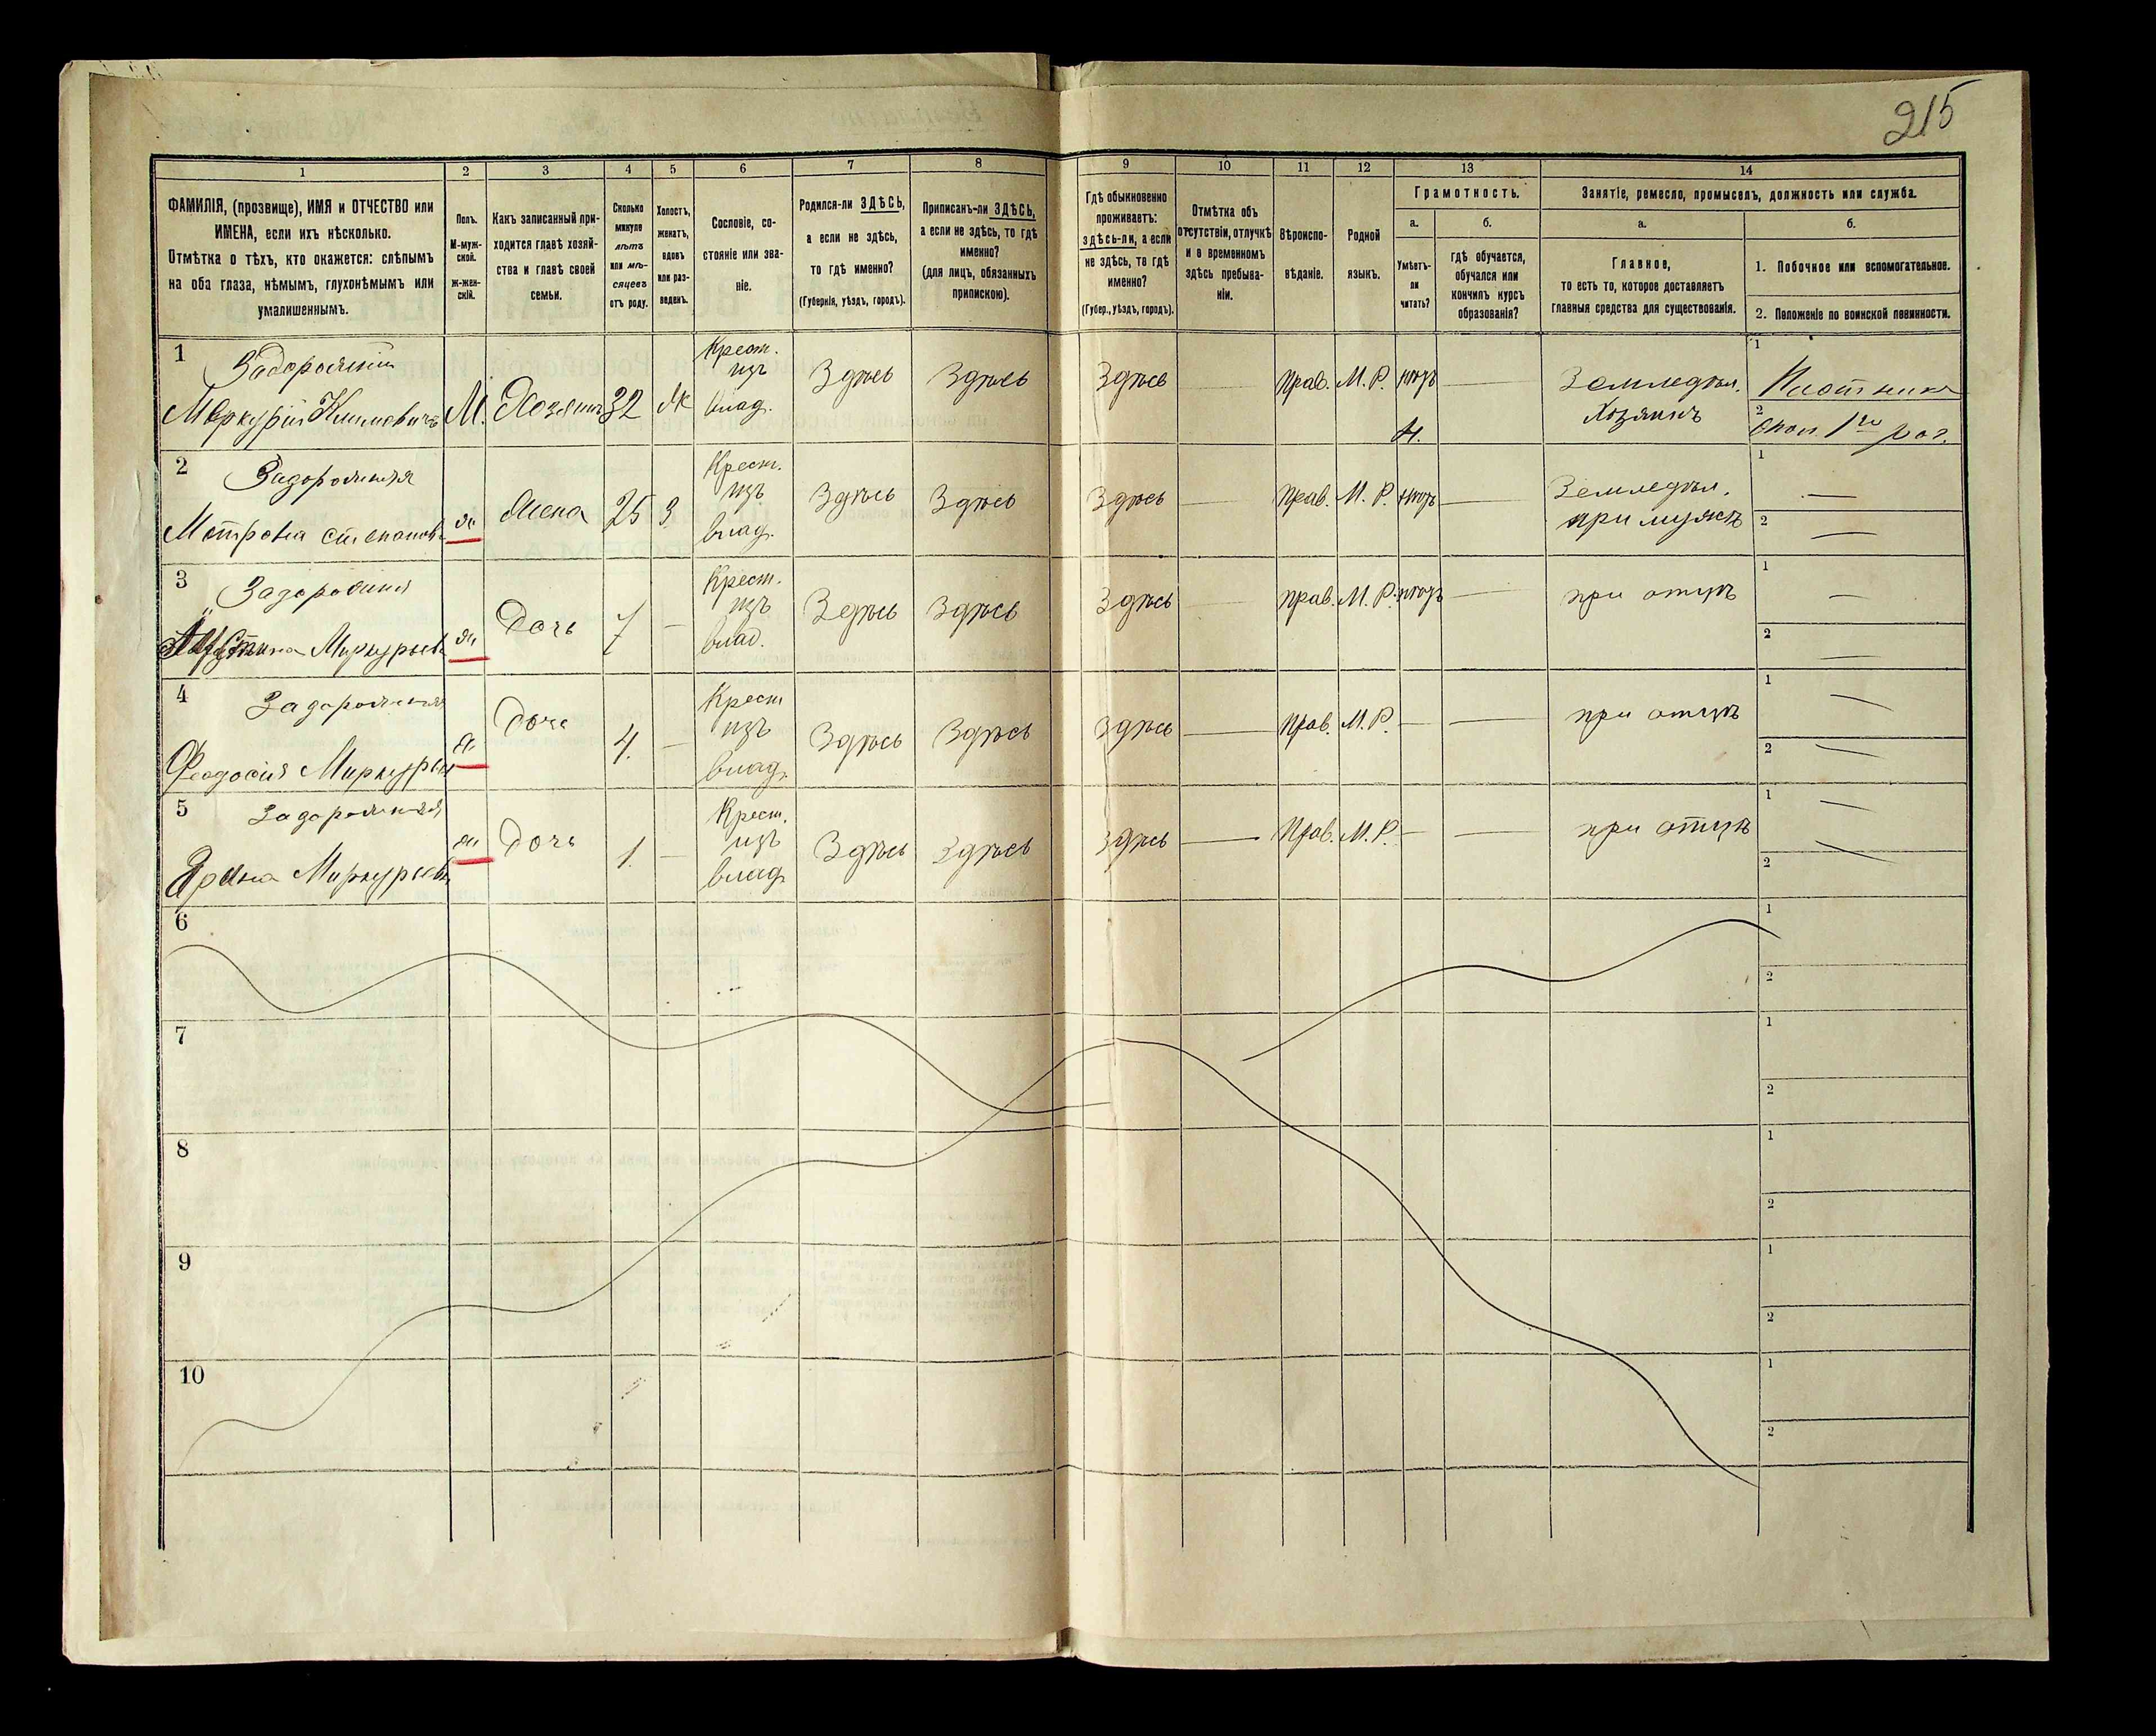 215
1 2 3 4 5 6 7 8 9 10 11 12 13 14
ФАМИЛІЯ, (прозвище), ИМЯ и ОТЧЕСТВО или
ИМЕНА, если ихъ нѣсколько.
Отмѣтка о тѣхъ, кто окажется: слѣпымъ
на оба глаза, нѣмымъ, глухонѣмымъ или
умалишеннымъ.
Полъ.
М-муж-
ской.
ж-жен-
скій.
Какъ записанный при-
ходится главѣ хозяй-
ства и главѣ своей
семьи.
Сколько
минуло
лѣтъ
или мѣ-
сяцевъ
отъ роду.
Холостъ,
женатъ,
вдовъ
или раз-
веденъ.
Сословіе, со-
стояніе или зва-
ніе.
Родился-ли ЗДѢСЬ,
а если не здѣсь,
то гдѣ именно?
(Губернія, уѣздъ, городъ).
Приписанъ-ли ЗДѢСЬ,
а если не здѣсь, то гдѣ
именно?
(для лицъ, обязанныхъ
припискою).
Гдѣ обыкновенно
проживаетъ:
здѣсь-ли, а если
не здѣсь, то гдѣ
именно?
(Губер., уѣздъ, городъ).
Отмѣтка объ
отсутствіи, отлучкѣ
и о временномъ
здѣсь пребыва-
ніи.
Вѣроиспо-
вѣданіе.
Родной
языкъ.
Грамотность.
а.
Умѣетъ-
ли
читать?
б.
гдѣ обучается,
обучался или
кончилъ курсъ
образованія?
Занятіе, ремесло, промыселъ, должность или служба.
а.
Главное,
то есть то, которое доставляетъ
главныя средства для существованія.
б.
1. Побочное или вспомогательное.
2. Положеніе по воинской повинности.
1 Задорожній
Меркурій Климовичъ М. Хозяинъ 32 Ж
Крест.
изъ
влад.
Здѣсь Здѣсь Здѣсь — Прав. М. Р. нѣтъ —
Земледѣл.
Хозяинъ
1 Плотникъ
2 Опол. 1го раз.
2 Задорожняя
Мотрона Степанов. ж Жена 25 З
Крест.
изъ
влад.
Здѣсь Здѣсь Здѣсь — Прав. М. Р. нѣтъ —
Земледѣл.
при мужѣ
1 —
2 —
3 Задорожня
Меркурьев. ж Дочь 7 —
Крест.
изъ
влад.
Здѣсь Здѣсь Здѣсь — Прав. М. Р. нѣтъ —
при отцѣ
1 —
2 —
4 Задорожняя
Феодосія Меркурьев ж Дочь 4. —
Крест
изъ
влад.
Здѣсь Здѣсь Здѣсь — Прав. М. Р. — —
при отцѣ
1 —
2 —
5 Задорожняя
Меркурьев. ж Дочь 1. —
Крест.
изъ
влад.
Здѣсь Здѣсь Здѣсь — Прав. М. Р. — —
при отцѣ
1 —
2 —
6
1
2
7
1
2
8
1
2
9
1
2
10
1
2